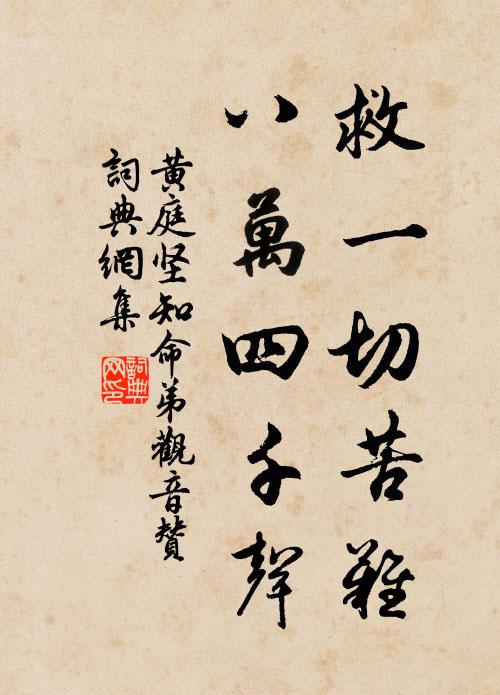 救一切苦難
八萬四千聲
黃庭坚知命弟觀音贊
詞典網集
詞典
网印